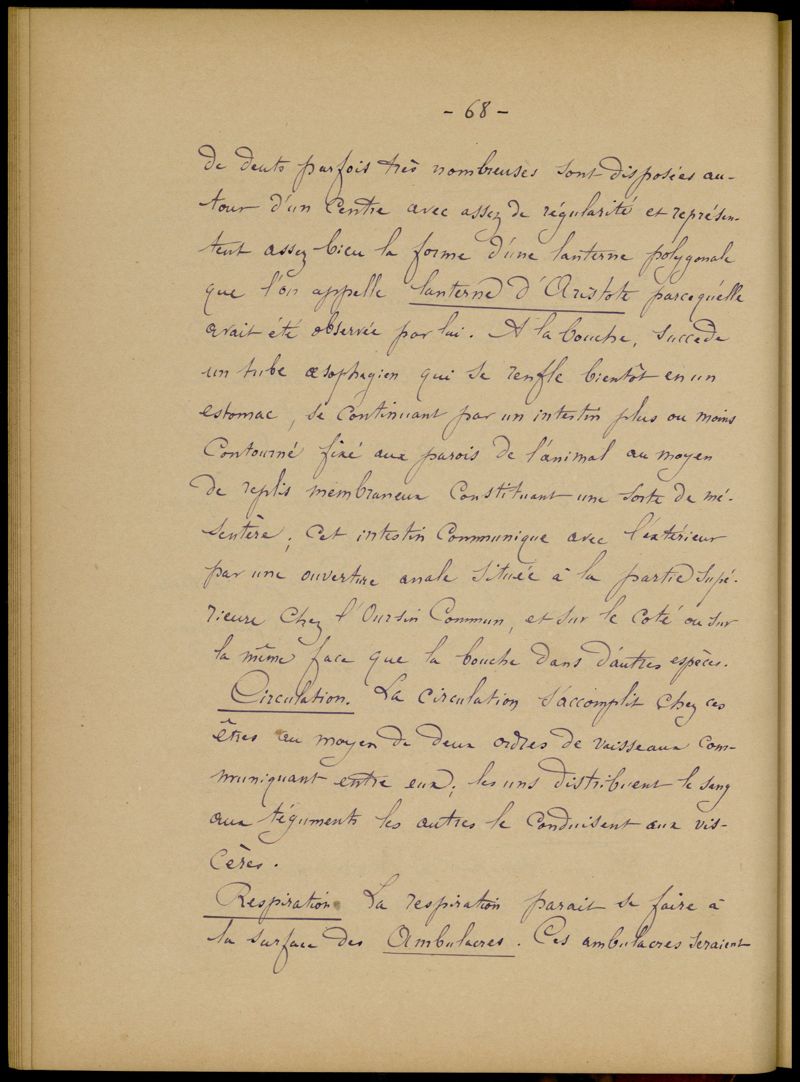 - 68 -
de dents parfois très nombreuses sont disposées au-
tour d'un Centre avec assez de régularité et représen-
tent assez bien la forme d'une lanterne polygonale
que l'on appelle lanterne d'Aristote parcequ'elle
avait été observée par lui. A la bouche, succede
un tube œsophagien qui se renfle bientôt en un
estomac, se continuant par un intestin plus ou moins
Contourné fixé aux parois de l'animal au moyen
de replis membraneux Constituant une sorte de mé-
sentère; Cet intestin Communique avec l'extérieur
par une ouverture anale située à la partie supé-
rieure chez l'Oursin Commun, et sur le coté ou sur
la même face que la bouche dans d'autres espèces.
Circulation. La circulation s'accomplit chez ces
êtres au moyen de deux ordres de vaisseaux com-
muniquant entre eux; les uns distribuent le sang
aux téguments les autres le Conduisent aux vis-
cères.
Respiration La respiration parait se faire à
la surface des Ambulacres. Ces ambulacres seraient